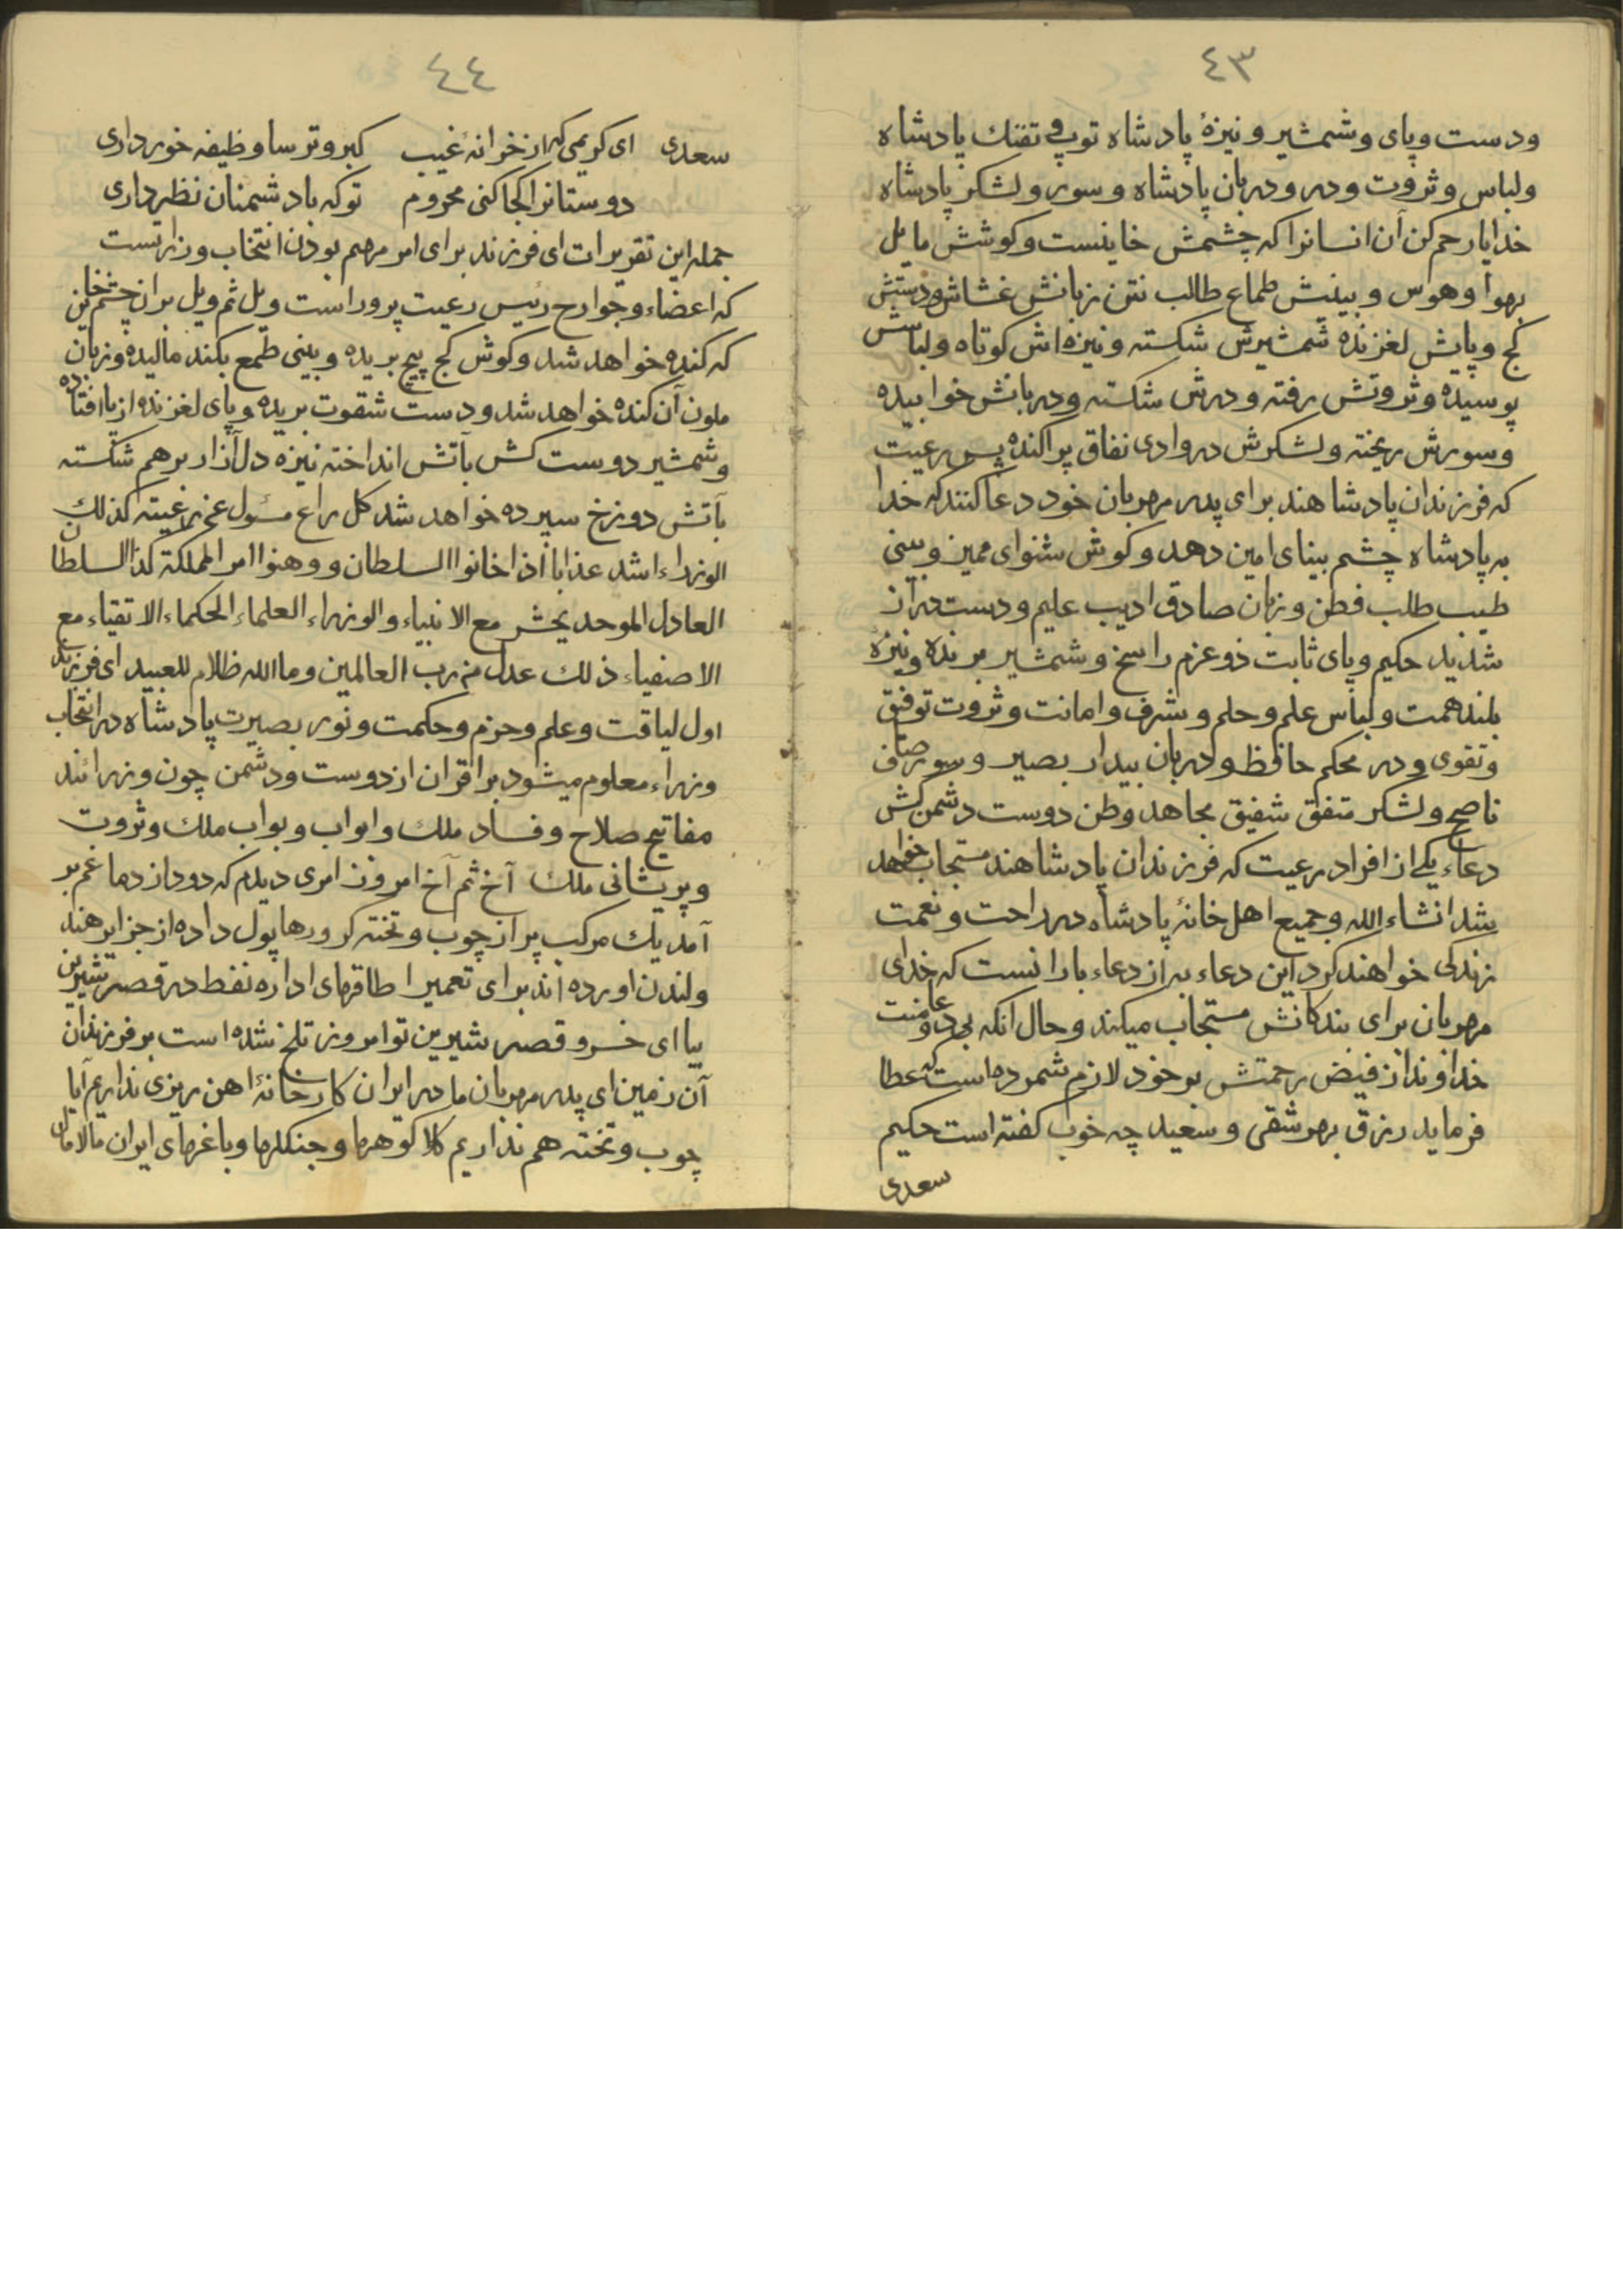 ٤٣
ودست وپای وشمشیر ونیزهٔ پادشاه توپ وتفنك پادشاه
ولباس وثروت ودر ودربان پادشاه وسور ولشکر پادشاه
خدایا رحم کن آن انسانرا که چشمش خاینست وکوشش مایل
بهوا وهوس وبینیش طماع طالب نتن زبانش غشاش ودستش
کج وپایش لغزنده شمشیرش شکسته ونیزه‌اش کوتاه ولباسش
پوسیده وثروتش رفته ودرش شکسته ودربانش خوابیده
وسورش ریخته ولشکرش در وادی نفاق پراکنده پس رعیت
که فرزندان پادشاهند برای پدر مهربان خود دعا کنند که خدا
به پادشاه چشم بینای امین دهد وکوش شنوای ممیز وبینی
طیب طلب فطن وزبان صادق ادیب علیم ودست دراز
شدید حکیم وپای ثابت ذو عزم راسخ وشمشیر برنده ونیزهٔ
بلند همت ولباس علم وحلم وشرف وامانت وثروت توفیق
وتقوی ودر محکم حافظ ودربان بیدار بصیر وسور صاف
ناصح ولشکر متفق شفیق مجاهد وطن دوست دشمن کش
دعاء یکی از افراد رعیت که فرزندان پادشاهند مستجاب خواهد
شد انشاء الله وجمیع اهل خانهٔ پادشاه در راحت ونعمت
زندکی خواهند کرد این دعاء به از دعاء بارانست که خدای
مهربان برای بندکانش مستجاب میکند وحال انکه بی دعا ومنت
خداوند از فیض رحمتش بر خود لازم شمرده است که عطا
فرماید رزق بهر شقی وسعید چه خوب کفته است حکیم
سعدی
٤٤
سعدی ای کریمی که از خزانهٔ غیب کبر وترسا وظیفه خور داری
دوستانرا کجا کنی محروم توکه با دشمنان نظر داری
جمله این تقریرات ای فرزند برای امر مهم بوذن انتخاب وزارتست
که اعضاء وجوارح رئیس رعیت پرور است ویل ثم ویل بران چشم خاین
که کنده خواهد شد وکوش کج پیچ بریده وبینی طمع بکند مالیده وزبان
ملون آن کنده خواهد شد ودست شقوت بریده وپای لغزنده از پا افتاده
وشمشیر دوست کش بآتش انداخته نیزه دل آزار برهم شکسته
بآتش دوزخ سپرده خواهد شد کل راع مسئول عن رعیته کذلك
الوزراء اشد عذابا اذا خانوا السلطان ووهنوا امر المملکة کذا السلطان
العادل الموحد یحشر مع الانبیاء والوزراء العلماء الحکماء الاتقیاء مع
الاصفیاء ذلك عدل من رب العالمین وما الله ظلام للعبید ای فرزند
اول لیاقت وعلم وحزم وحکمت ونور بصیرت پادشاه در انتخاب
وزراء معلوم میشود بر اقران از دوست ودشمن چون وزرائند
مفاتیح صلاح وفساد ملك وابواب وبواب ملك وثروت
وپریشانی ملك آخ ثم آخ امروز امری دیدم که دود از دماغم بر
آمد یك مرکب پر از چوب وتخته کرورها پول داده از جزایر هند
ولندن اورده اند برای تعمیر اطاقهای اداره نفط در قصر شیرین
بیا ای خسرو قصر شیرین تو امروز تلخ شده است بر فرزندان
آن زمین ای پدر مهربان ما در ایران کارخانهٔ اهن ریزی نداریم آیا
چوب وتخته هم نداریم کلا کوهها وجنکلها وباغهای ایران مالامال